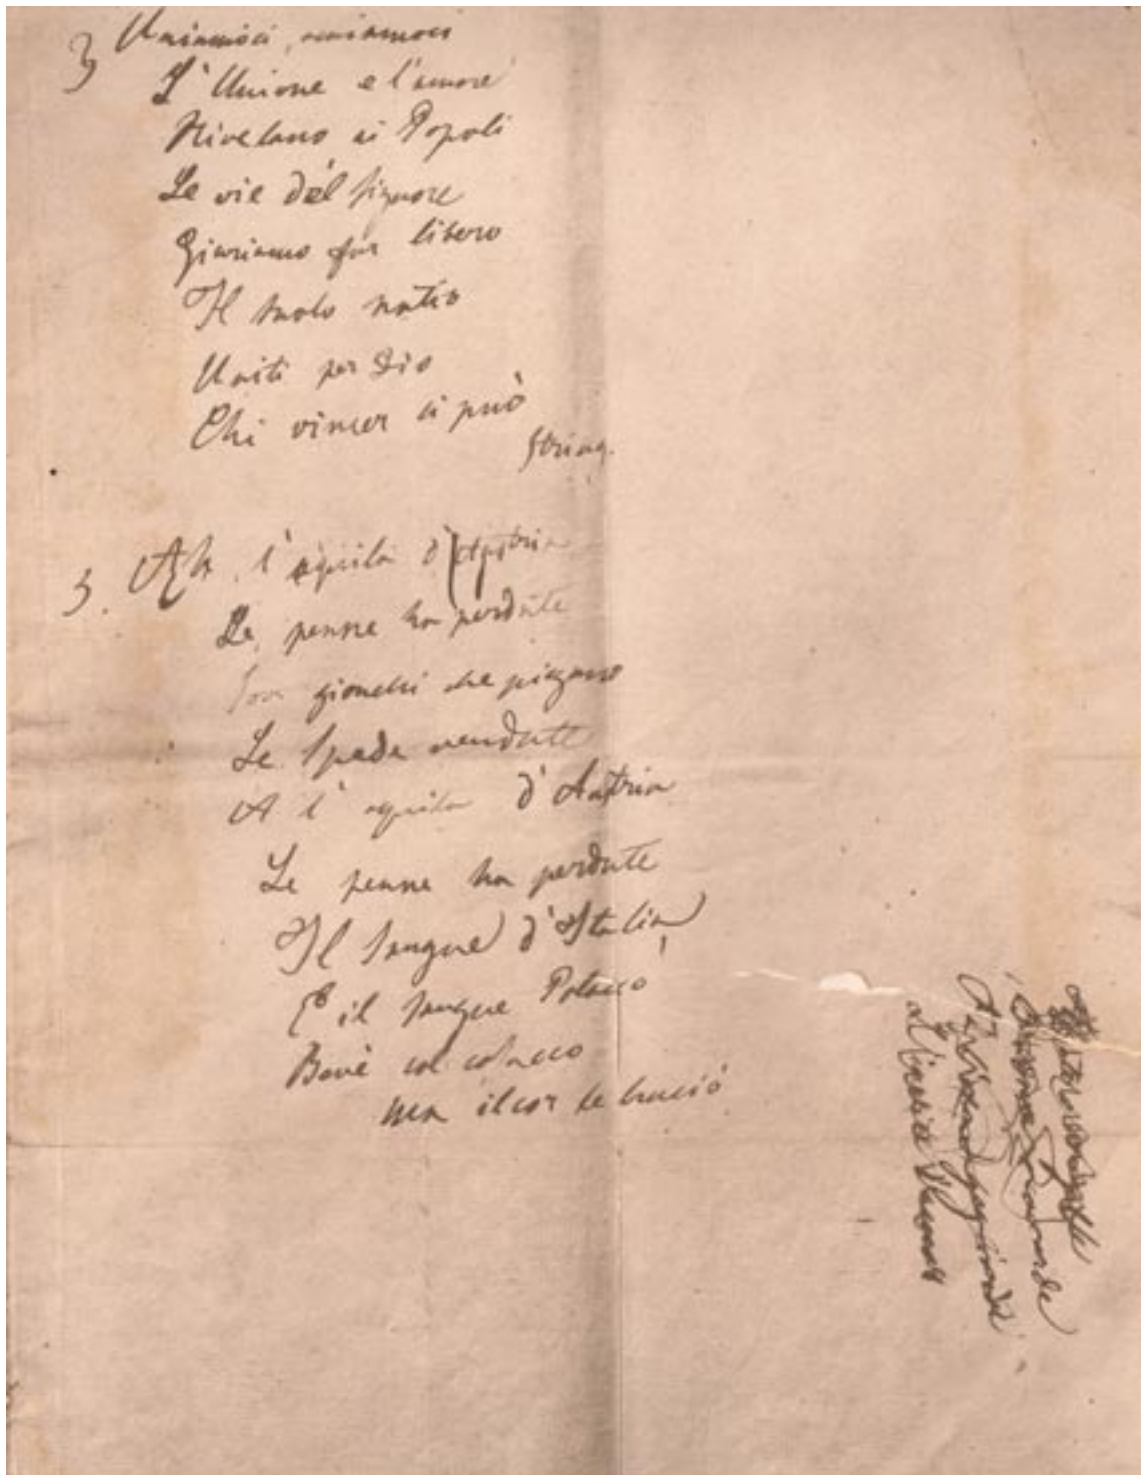 3 Uniamoci, amiamoci
L'Unione e l'amore
Rivelano ai Popoli
Le vie del Signore
Giuriamo far libero
Il suolo natio
Uniti per Dio
Chi vincer ci può
String.
5. Ah l'aquila d'Austria
Le penne ha perdute
Son giunchi che piegano
Le Spade vendute
A l'aquila d'Austria
Le penne ha perdute
Il Sangue d'Italia
E il sangue Polacco
Bevè col cosacco
Ma il cor le bruciò